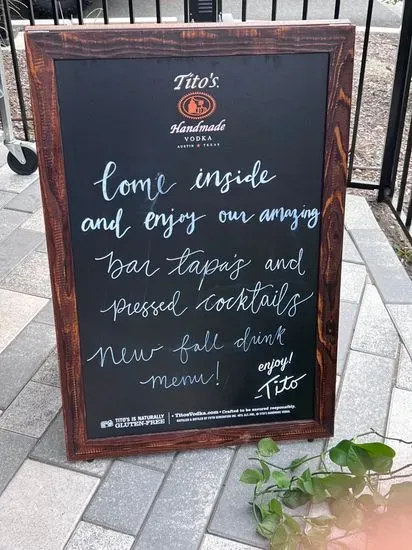 Tito's
Handmade
VODKA
AUSTIN ★ TEXAS
Come inside
and enjoy our amazing
bar tapa's and
pressed cocktails
new fall drink
menu!
enjoy!
-Tito
TITO'S IS NATURALLY
GLUTEN-FREE
• TitosVodka.com • Crafted to be savored responsibly.